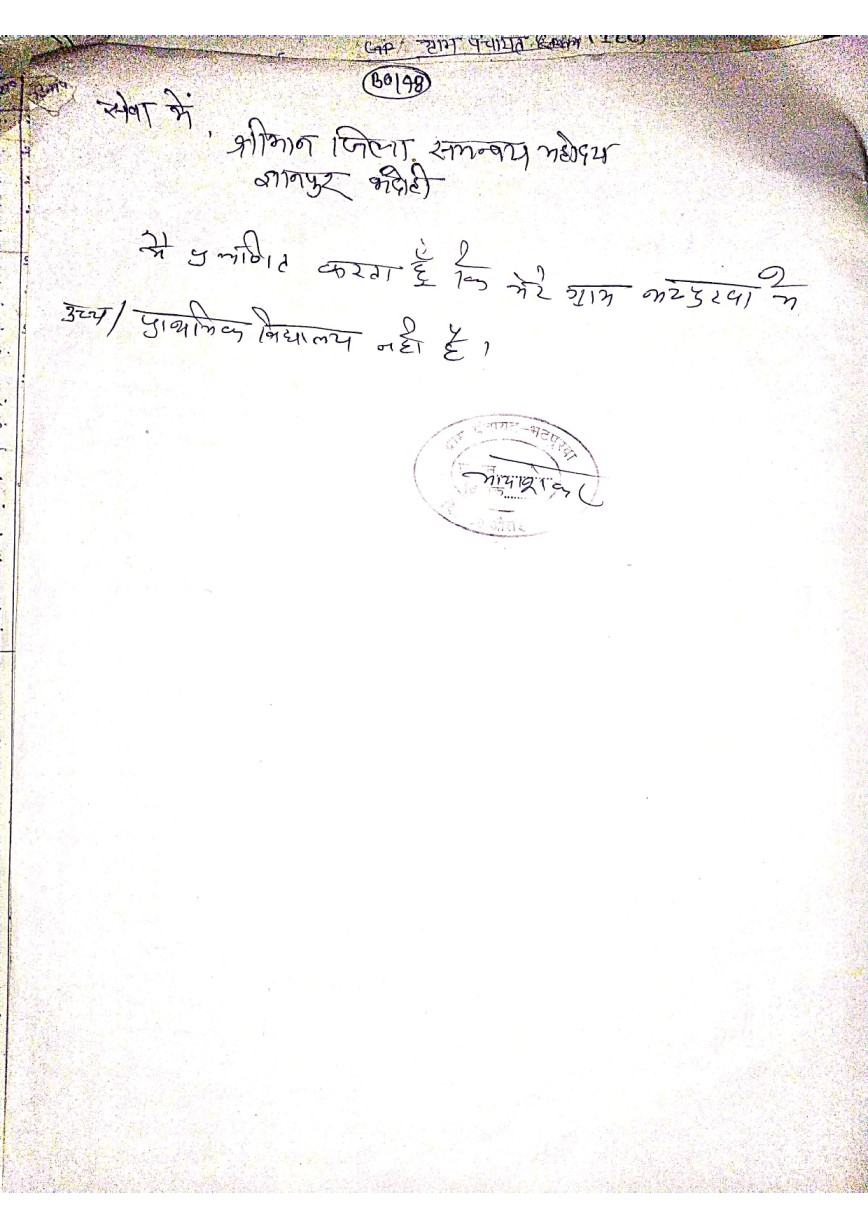 GP/ ग्राम पंचायत
B0198
सेवा में,
श्रीमान जिला समन्वय महोदय
ज्ञानपुर भदोही
मै प्रमाणित करता हूँ कि मेरे ग्राम भटपुरवा में
उच्च/प्राथमिक विद्यालय नही है।
ग्राम पंचायत-भटपुरवा